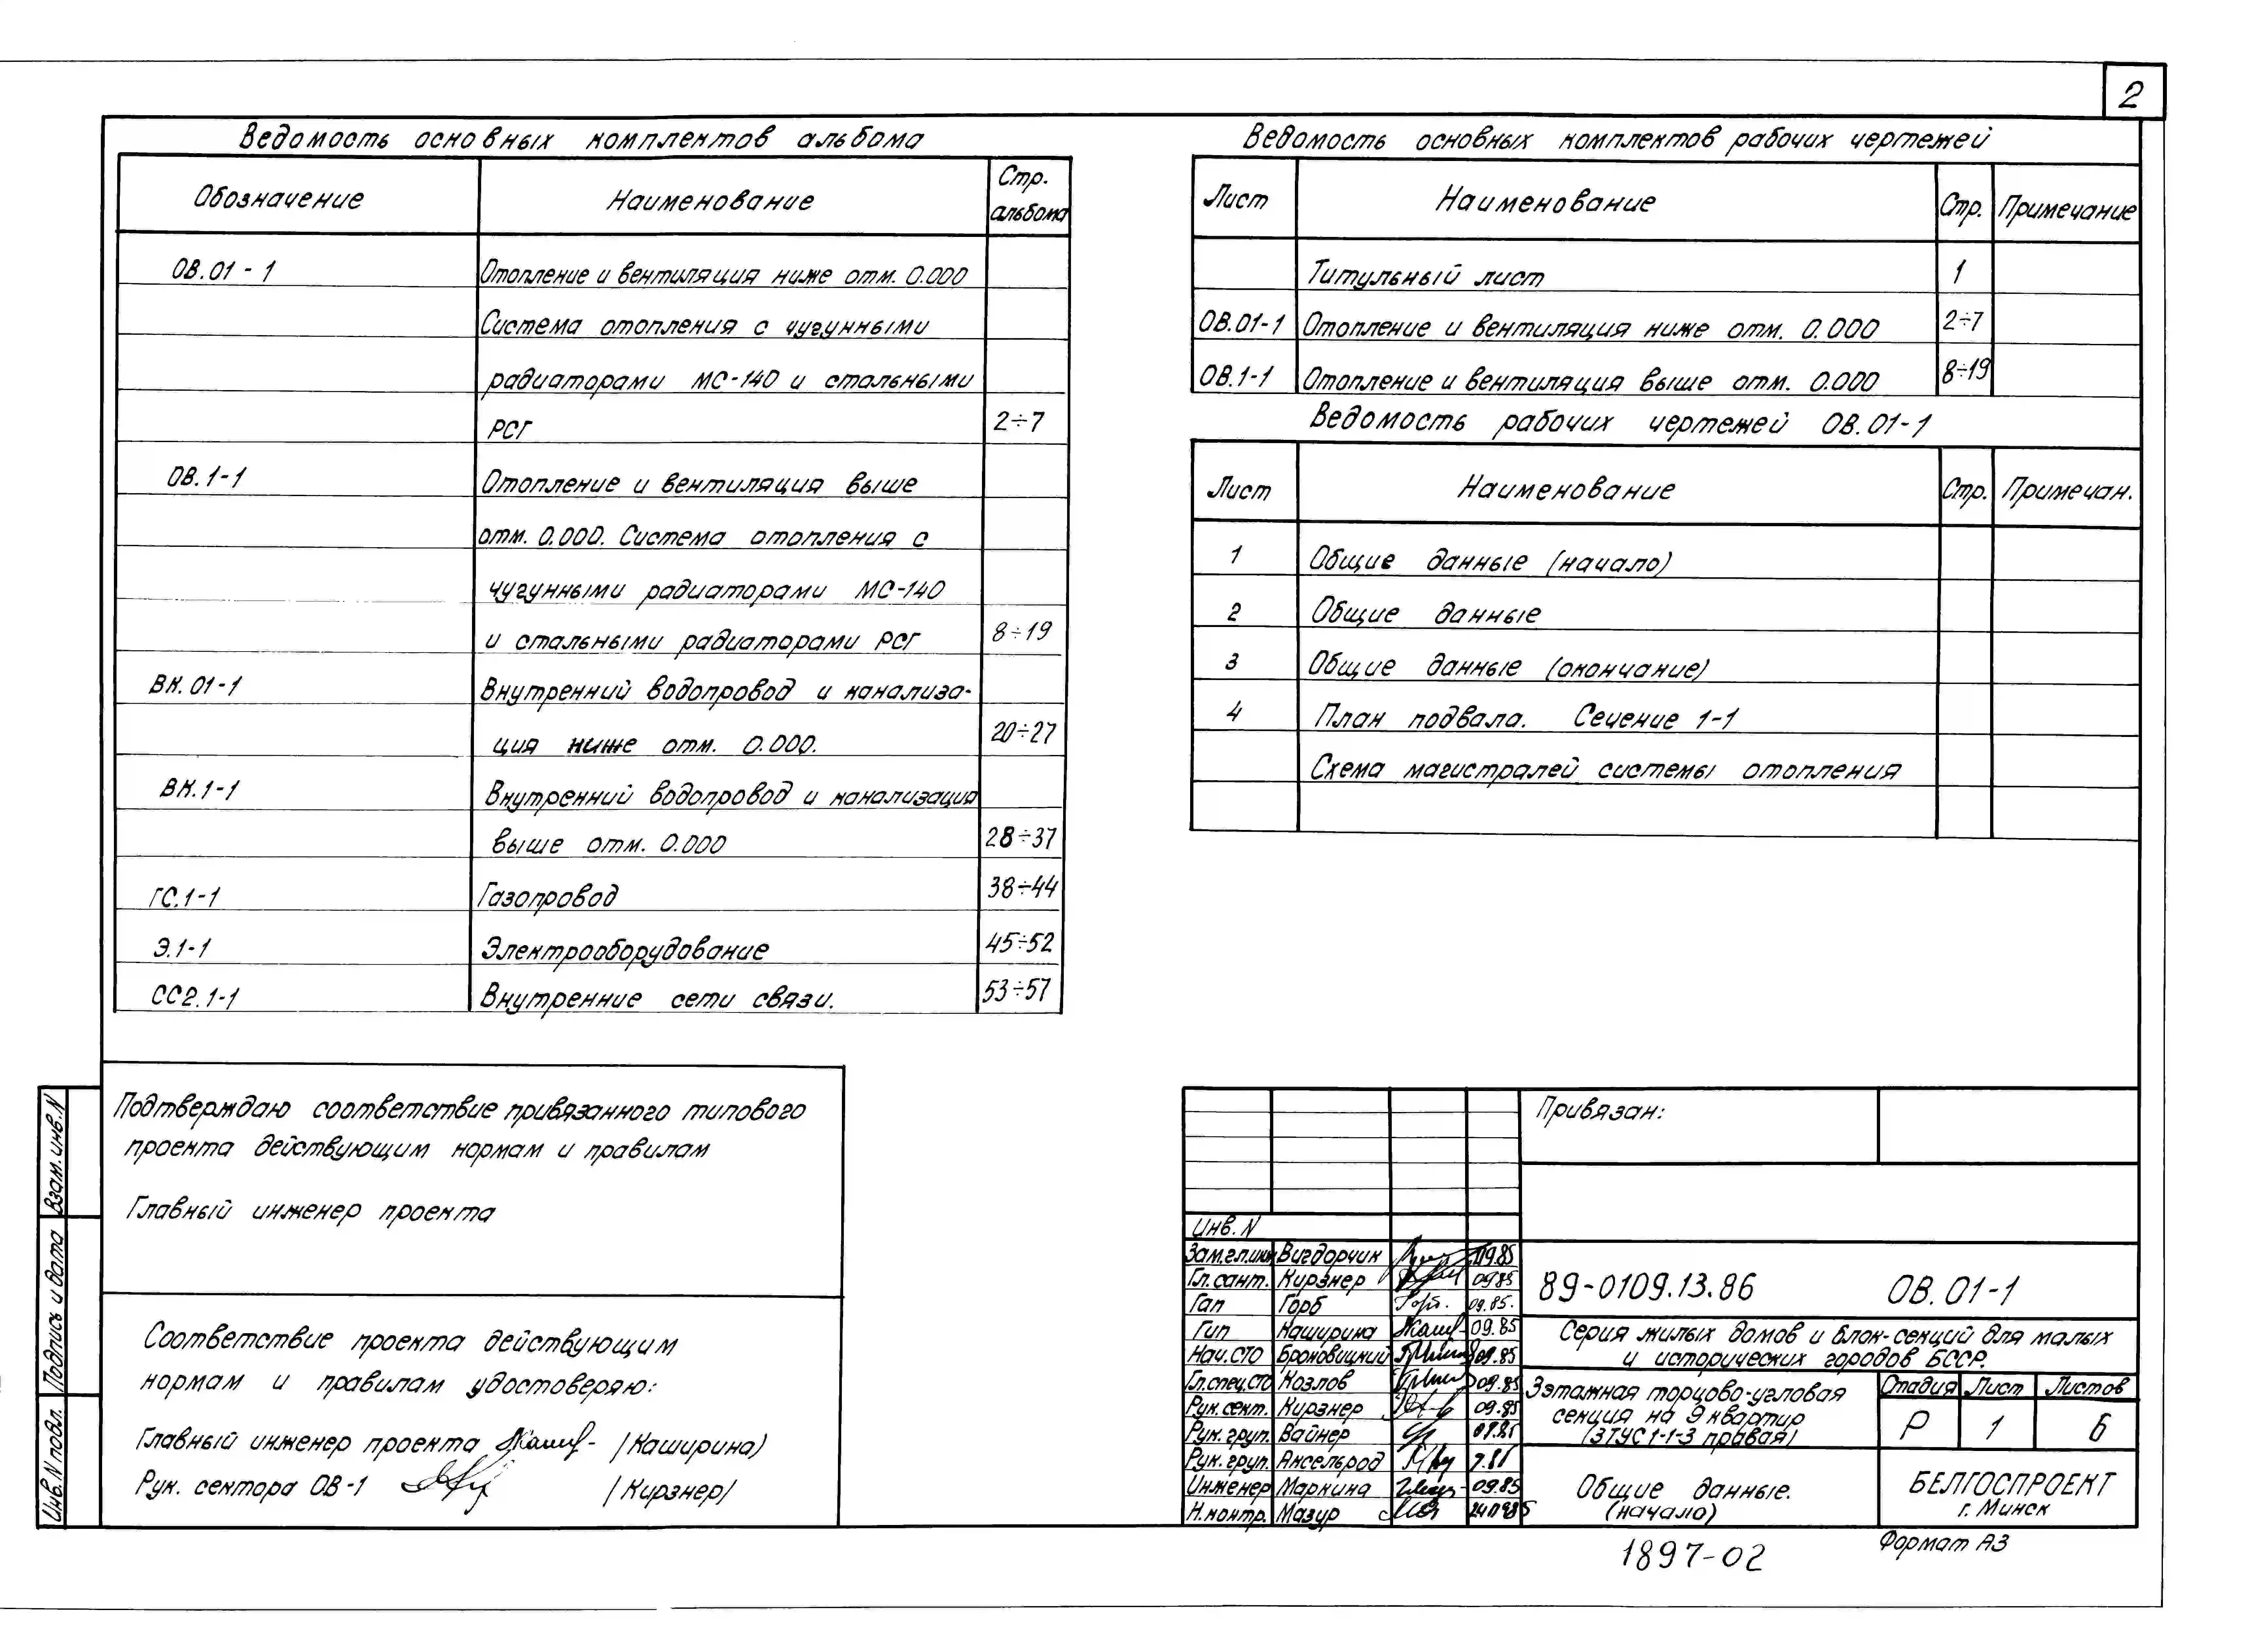 2
Ведомость основных комплектов альбома
Обозначение Наименование Стр. альбома
ОВ.01-1 Отопление и вентиляция ниже отм. 0.000
Система отопления с чугунными
радиаторами МС-140 и стальными
РСГ 2÷7
ОВ.1-1 Отопление и вентиляция выше
отм. 0.000. Система отопления с
чугунными радиаторами МС-140
и стальными радиаторами РСГ 8÷19
ВК.01-1 Внутренний водопровод и канализа-
ция ниже отм. 0.000. 20÷27
ВК.1-1 Внутренний водопровод и канализация
выше отм. 0.000 28÷37
ГС.1-1 Газопровод 38÷44
Э.1-1 Электрооборудование 45÷52
СС2.1-1 Внутренние сети связи. 53÷57
Ведомость основных комплектов рабочих чертежей
Лист Наименование Стр. Примечание
Титульный лист 1
ОВ.01-1 Отопление и вентиляция ниже отм. 0.000 2÷7
ОВ.1-1 Отопление и вентиляция выше отм. 0.000 8÷19
Ведомость рабочих чертежей ОВ.01-1
Лист Наименование Стр. Примечан.
1 Общие данные (начало)
2 Общие данные
3 Общие данные (окончание)
4 План подвала. Сечение 1-1
Схема магистралей системы отопления
Подтверждаю соответствие привязанного типового
проекта действующим нормам и правилам
Главный инженер проекта
Соответствие проекта действующим
нормам и правилам удостоверяю:
Главный инженер проекта /Каширина/
Рук. сектора ОВ-1 /Кирзнер/
Взам.инв.N
Подпись и дата
Инв.N подл.
Привязан:
Инв.N
Зам.гл.инж Вигдорчик 09.85
Гл.сант. Кирзнер 09.85
Гап Горб 09.85.
Гип Каширина 09.85
Нач.СТО Броновицкий 09.85
Гл.спец.СТО Козлов 09.85
Рук.сект. Кирзнер 09.85
Рук.груп. Вайнер
Рук.груп. Аксельрод
Инженер Маркина 09.85
Н.контр. Мазур
89-0109.13.86 ОВ.01-1
Серия жилых домов и блок-секций для малых
и исторических городов БССР.
3этажная торцово-угловая
секция на 9 квартир
(3ТУС1-1-3 правая)
Стадия Лист Листов
Р 1 6
Общие данные.
(начало)
БЕЛГОСПРОЕКТ
г. Минск
1897-02
Формат А3